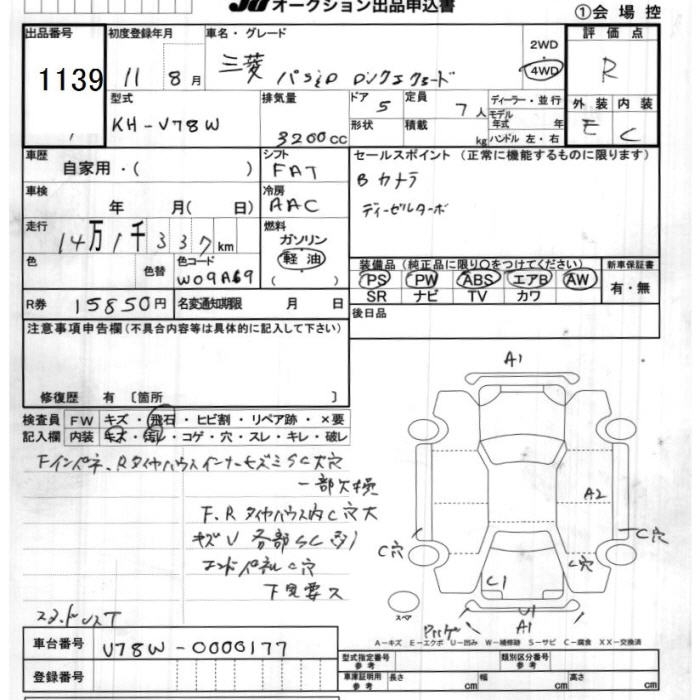 オークション出品申込書
①会場控
出品番号 初度登録年月 車名・グレード 2WD 評価点
1139 11 8月 三菱 4WD R
型式 排気量 ドア 5 定員 7人 ディーラー・並行 外装 内装
KH-V78W 3200cc 形状 積載 kg モデル年式 年 E C
ハンドル 左・右
車歴 シフト セールスポイント(正常に機能するものに限ります)
自家用・( ) FAT Bカメラ
車検 冷房 ディーゼルターボ
年 月( 日) AAC
走行 燃料
14万1千337km ガソリン
色 色替 色コード 軽油 装備品(純正品に限り○をつけてください) 新車保証書
W09A69 ( ) PS PW ABS エアB AW 有・無
R券 15850円 名変通知期限 月 日 SR ナビ TV カワ
注意事項申告欄(不具合内容等は具体的に記入して下さい) 後日品
修復歴 有〔箇所 〕
検査員 FW キズ・飛石・ヒビ割・リペア跡・×要
記入欄 内装 キズ・汚れ・コゲ・穴・スレ・キレ・破レ
A1
一部欠損
F、Rタイヤハウス内C穴大
キズU 各部SC
エンドパネルC穴
下見要ス
A2
C穴
C穴
C穴
C1
スペア
U1
A1
A-キズ E-エクボ U-凹み W-補修跡 S-サビ C-腐食 XX-交換済
車台番号 V78W-0000177
型式指定番号 参考 類別区分番号 参考
登録番号
車庫証明用 参考 長さ cm 幅 cm 高さ cm